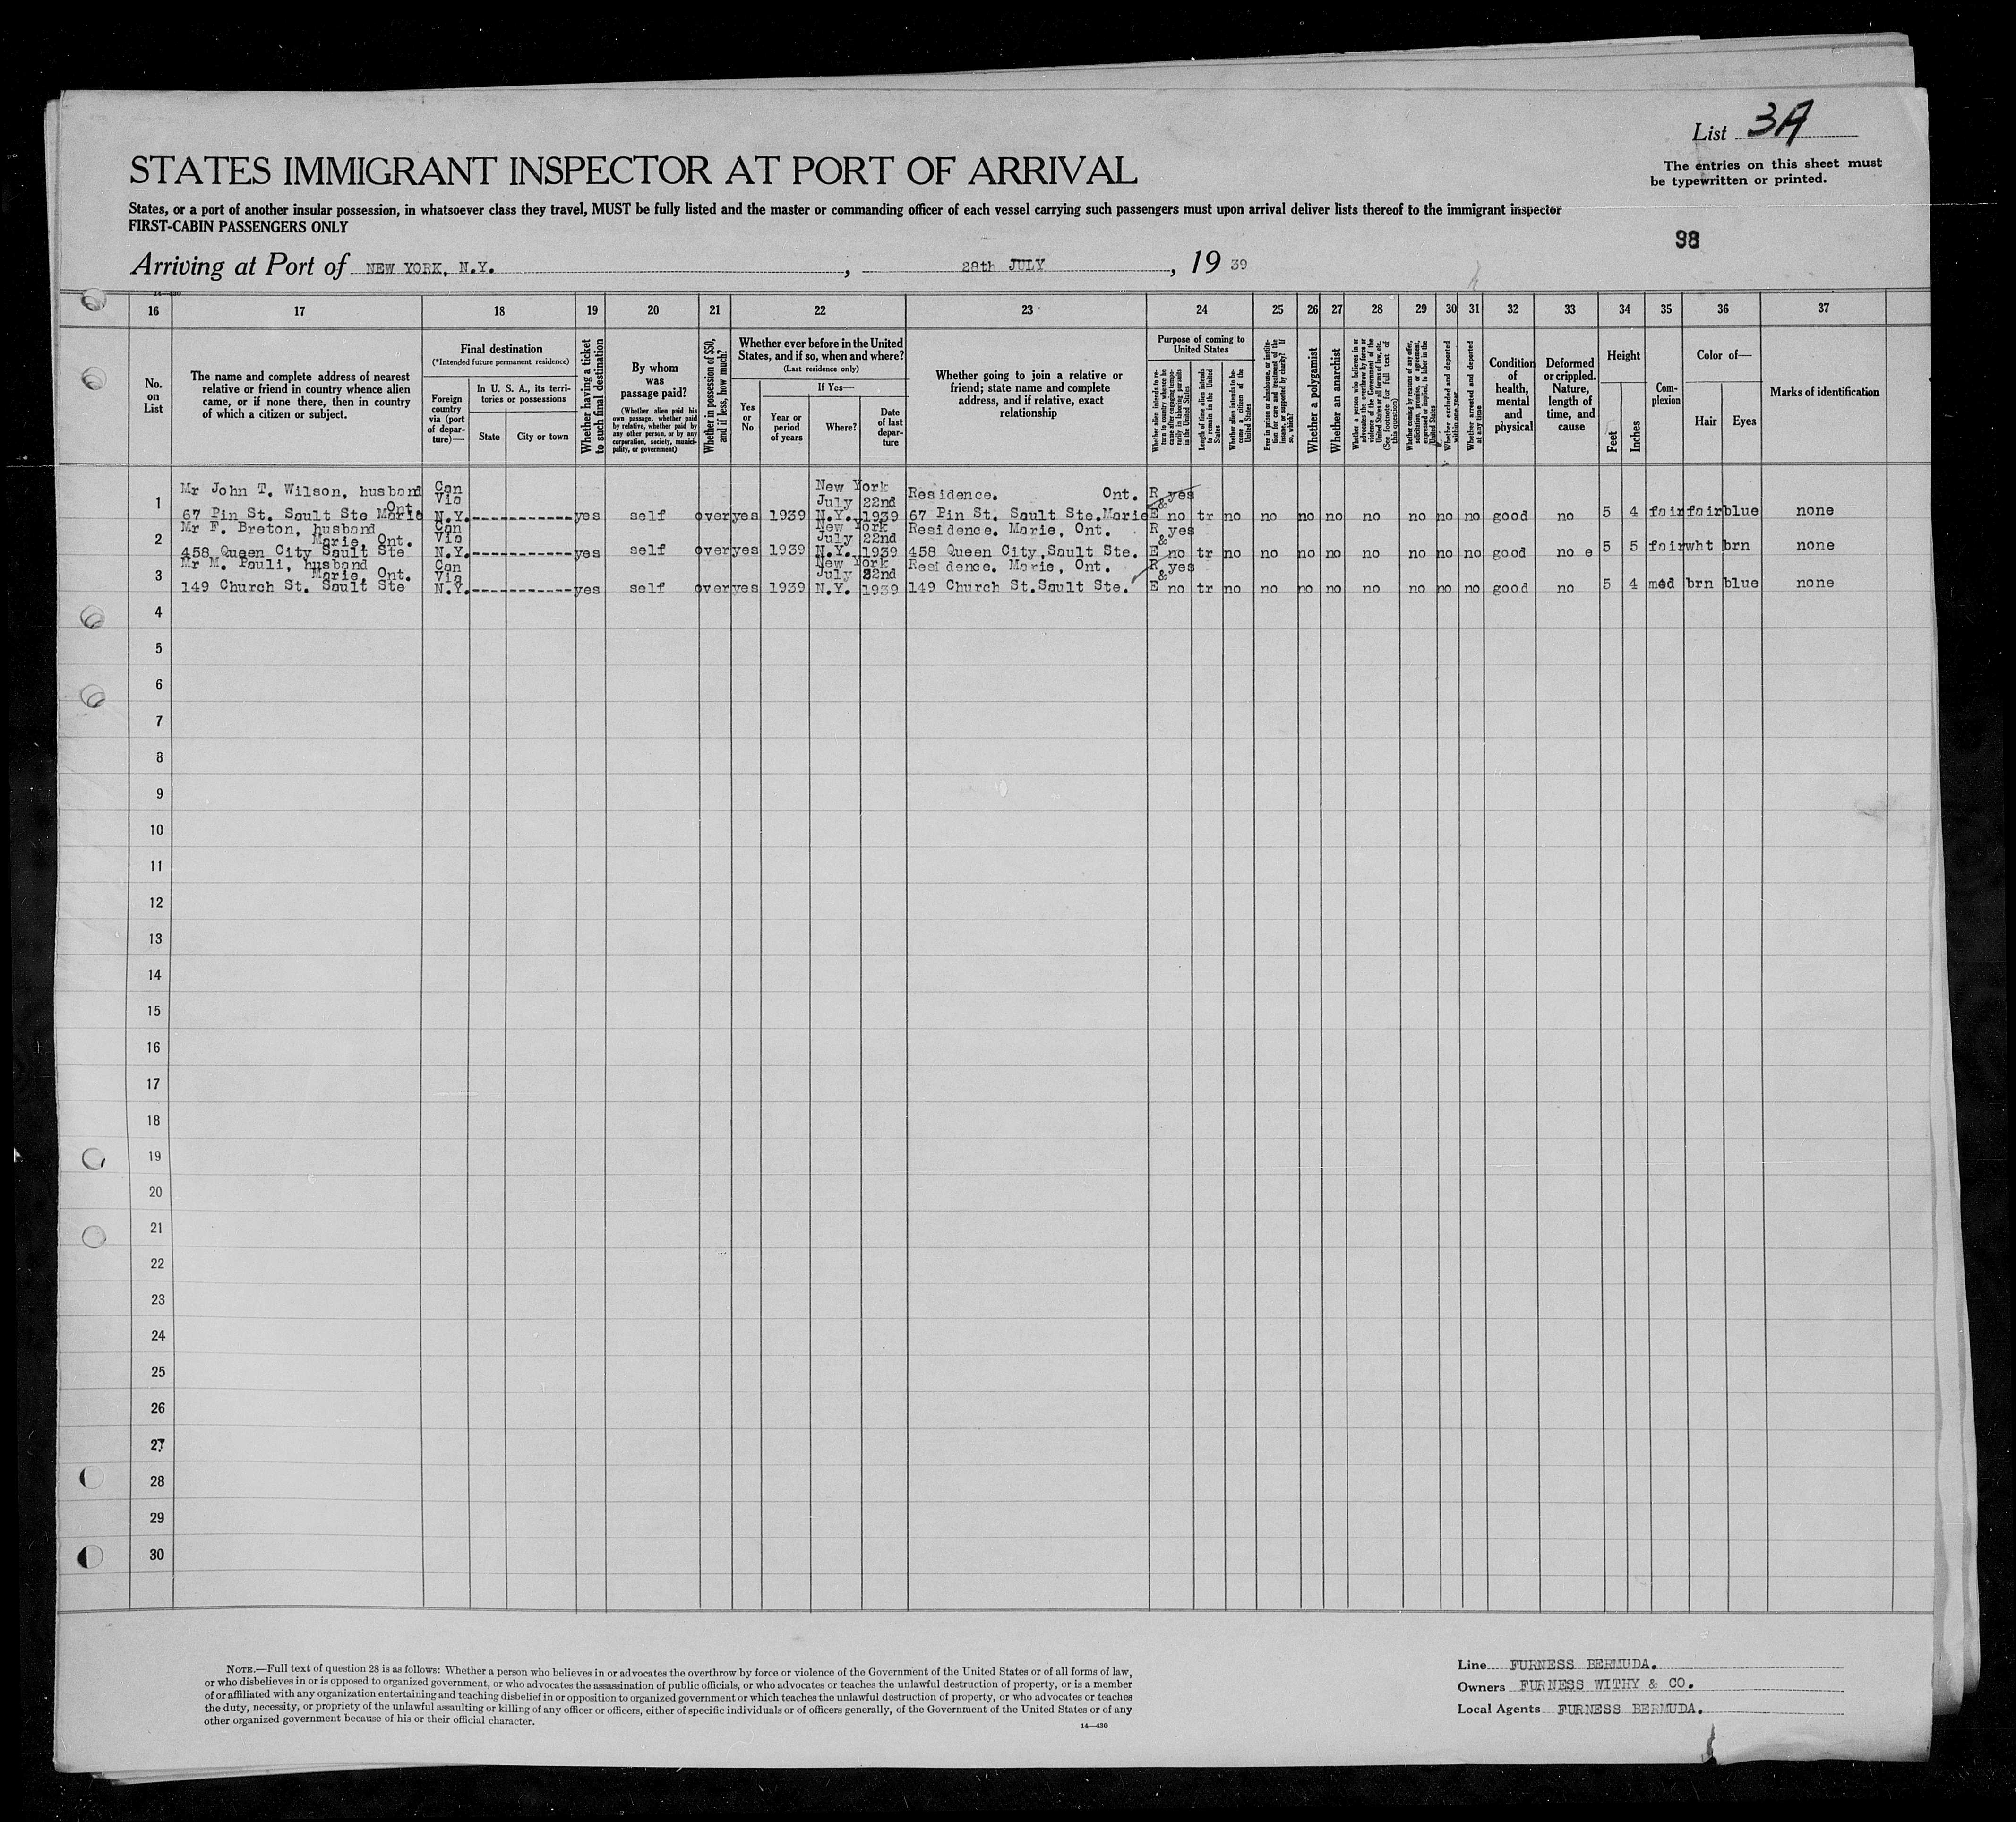 List 3A
The entries on this sheet must
be typewritten or printed.
STATES IMMIGRANT INSPECTOR AT PORT OF ARRIVAL
States, or a port of another insular possession, in whatsoever class they travel, MUST be fully listed and the master or commanding officer of each vessel carrying such passengers must upon arrival deliver lists thereof to the immigrant inspector
FIRST-CABIN PASSENGERS ONLY
98
Arriving at Port of NEW YORK, N.Y. , 28th JULY , 19 39
14—430
16 17 18 19 20 21 22 23 24 25 26 27 28 29 30 31 32 33 34 35 36 37
No.
on
List
The name and complete address of nearest
relative or friend in country whence alien
came, or if none there, then in country
of which a citizen or subject.
Final destination
(*Intended future permanent residence)
Foreign
country
via (port
of depar-
ture)—
In U. S. A., its terri-
tories or possessions
State
City or town
Whether having a ticket
to such final destination
By whom
was
passage paid?
(Whether alien paid his
own passage, whether paid
by relative, whether paid by
any other person, or by any
corporation, society, munici-
pality, or government)
Whether in possession of $50,
and if less, how much?
Whether ever before in the United
States, and if so, when and where?
(Last residence only)
Yes
or
No
If Yes—
Year or
period
of years
Where?
Date
of last
depar-
ture
Whether going to join a relative or
friend; state name and complete
address, and if relative, exact
relationship
Purpose of coming to
United States
Whether alien intends to re-
turn to country whence he
came after engaging tempo-
rarily in laboring pursuits
in the United States
Length of time alien intends
to remain in the United
States
Whether alien intends to be-
come a citizen of the
United States
Ever in prison or almshouse, or institu-
tion for care and treatment of the
insane, or supported by charity? If
so, which?
Whether a polygamist
Whether an anarchist
Whether a person who believes in or
advocates the overthrow by force or
violence of the Government of the
United States or all forms of law, etc.
(See footnote for full text of
this question)
Whether coming by reasons of any offer,
solicitation, promise, or agreement,
expressed or implied, to labor in the
United States
Whether excluded and deported
within one year
Whether arrested and deported
at any time
Condition
of
health,
mental
and
physical
Deformed
or crippled.
Nature,
length of
time, and
cause
Height
Feet
Inches
Com-
plexion
Color of—
Hair
Eyes
Marks of identification
Mr John T. Wilson, husband Can New York Residence. Ont. R yes
1 Ont. Via July 22nd &
67 Pin St. Sault Ste Marie N.Y.------------yes self over yes 1939 N.Y. 1939 67 Pin St. Sault Ste.Marie E no tr no no no no no no no no good no 5 4 fair fair blue none
Mr F. Breton, husband Can New York Residence. Marie, Ont. R yes
2 Marie, Ont. Via July 22nd &
458 Queen City Sault Ste N.Y.------------yes self over yes 1939 N.Y. 1939 458 Queen City,Sault Ste. E no tr no no no no no no no no good no e 5 5 fair wht brn none
Mr M. Pauli, husband Can New York Residence. Marie, Ont. R yes
3 Marie, Ont. Via July 22nd &
149 Church St. Sault Ste N.Y.------------yes self over yes 1939 N.Y. 1939 149 Church St.Sault Ste. E no tr no no no no no no no no good no 5 4 med brn blue none
4
5
6
7
8
9
10
11
12
13
14
15
16
17
18
19
20
21
22
23
24
25
26
27
28
29
30
NOTE.—Full text of question 28 is as follows: Whether a person who believes in or advocates the overthrow by force or violence of the Government of the United States or of all forms of law,
or who disbelieves in or is opposed to organized government, or who advocates the assassination of public officials, or who advocates or teaches the unlawful destruction of property, or is a member
of or affiliated with any organization entertaining and teaching disbelief in or opposition to organized government or which teaches the unlawful destruction of property, or who advocates or teaches
the duty, necessity, or propriety of the unlawful assaulting or killing of any officer or officers, either of specific individuals or of officers generally, of the Government of the United States or of any
other organized government because of his or their official character.
14—430
Line FURNESS BERMUDA.
Owners FURNESS WITHY & CO.
Local Agents FURNESS BERMUDA.